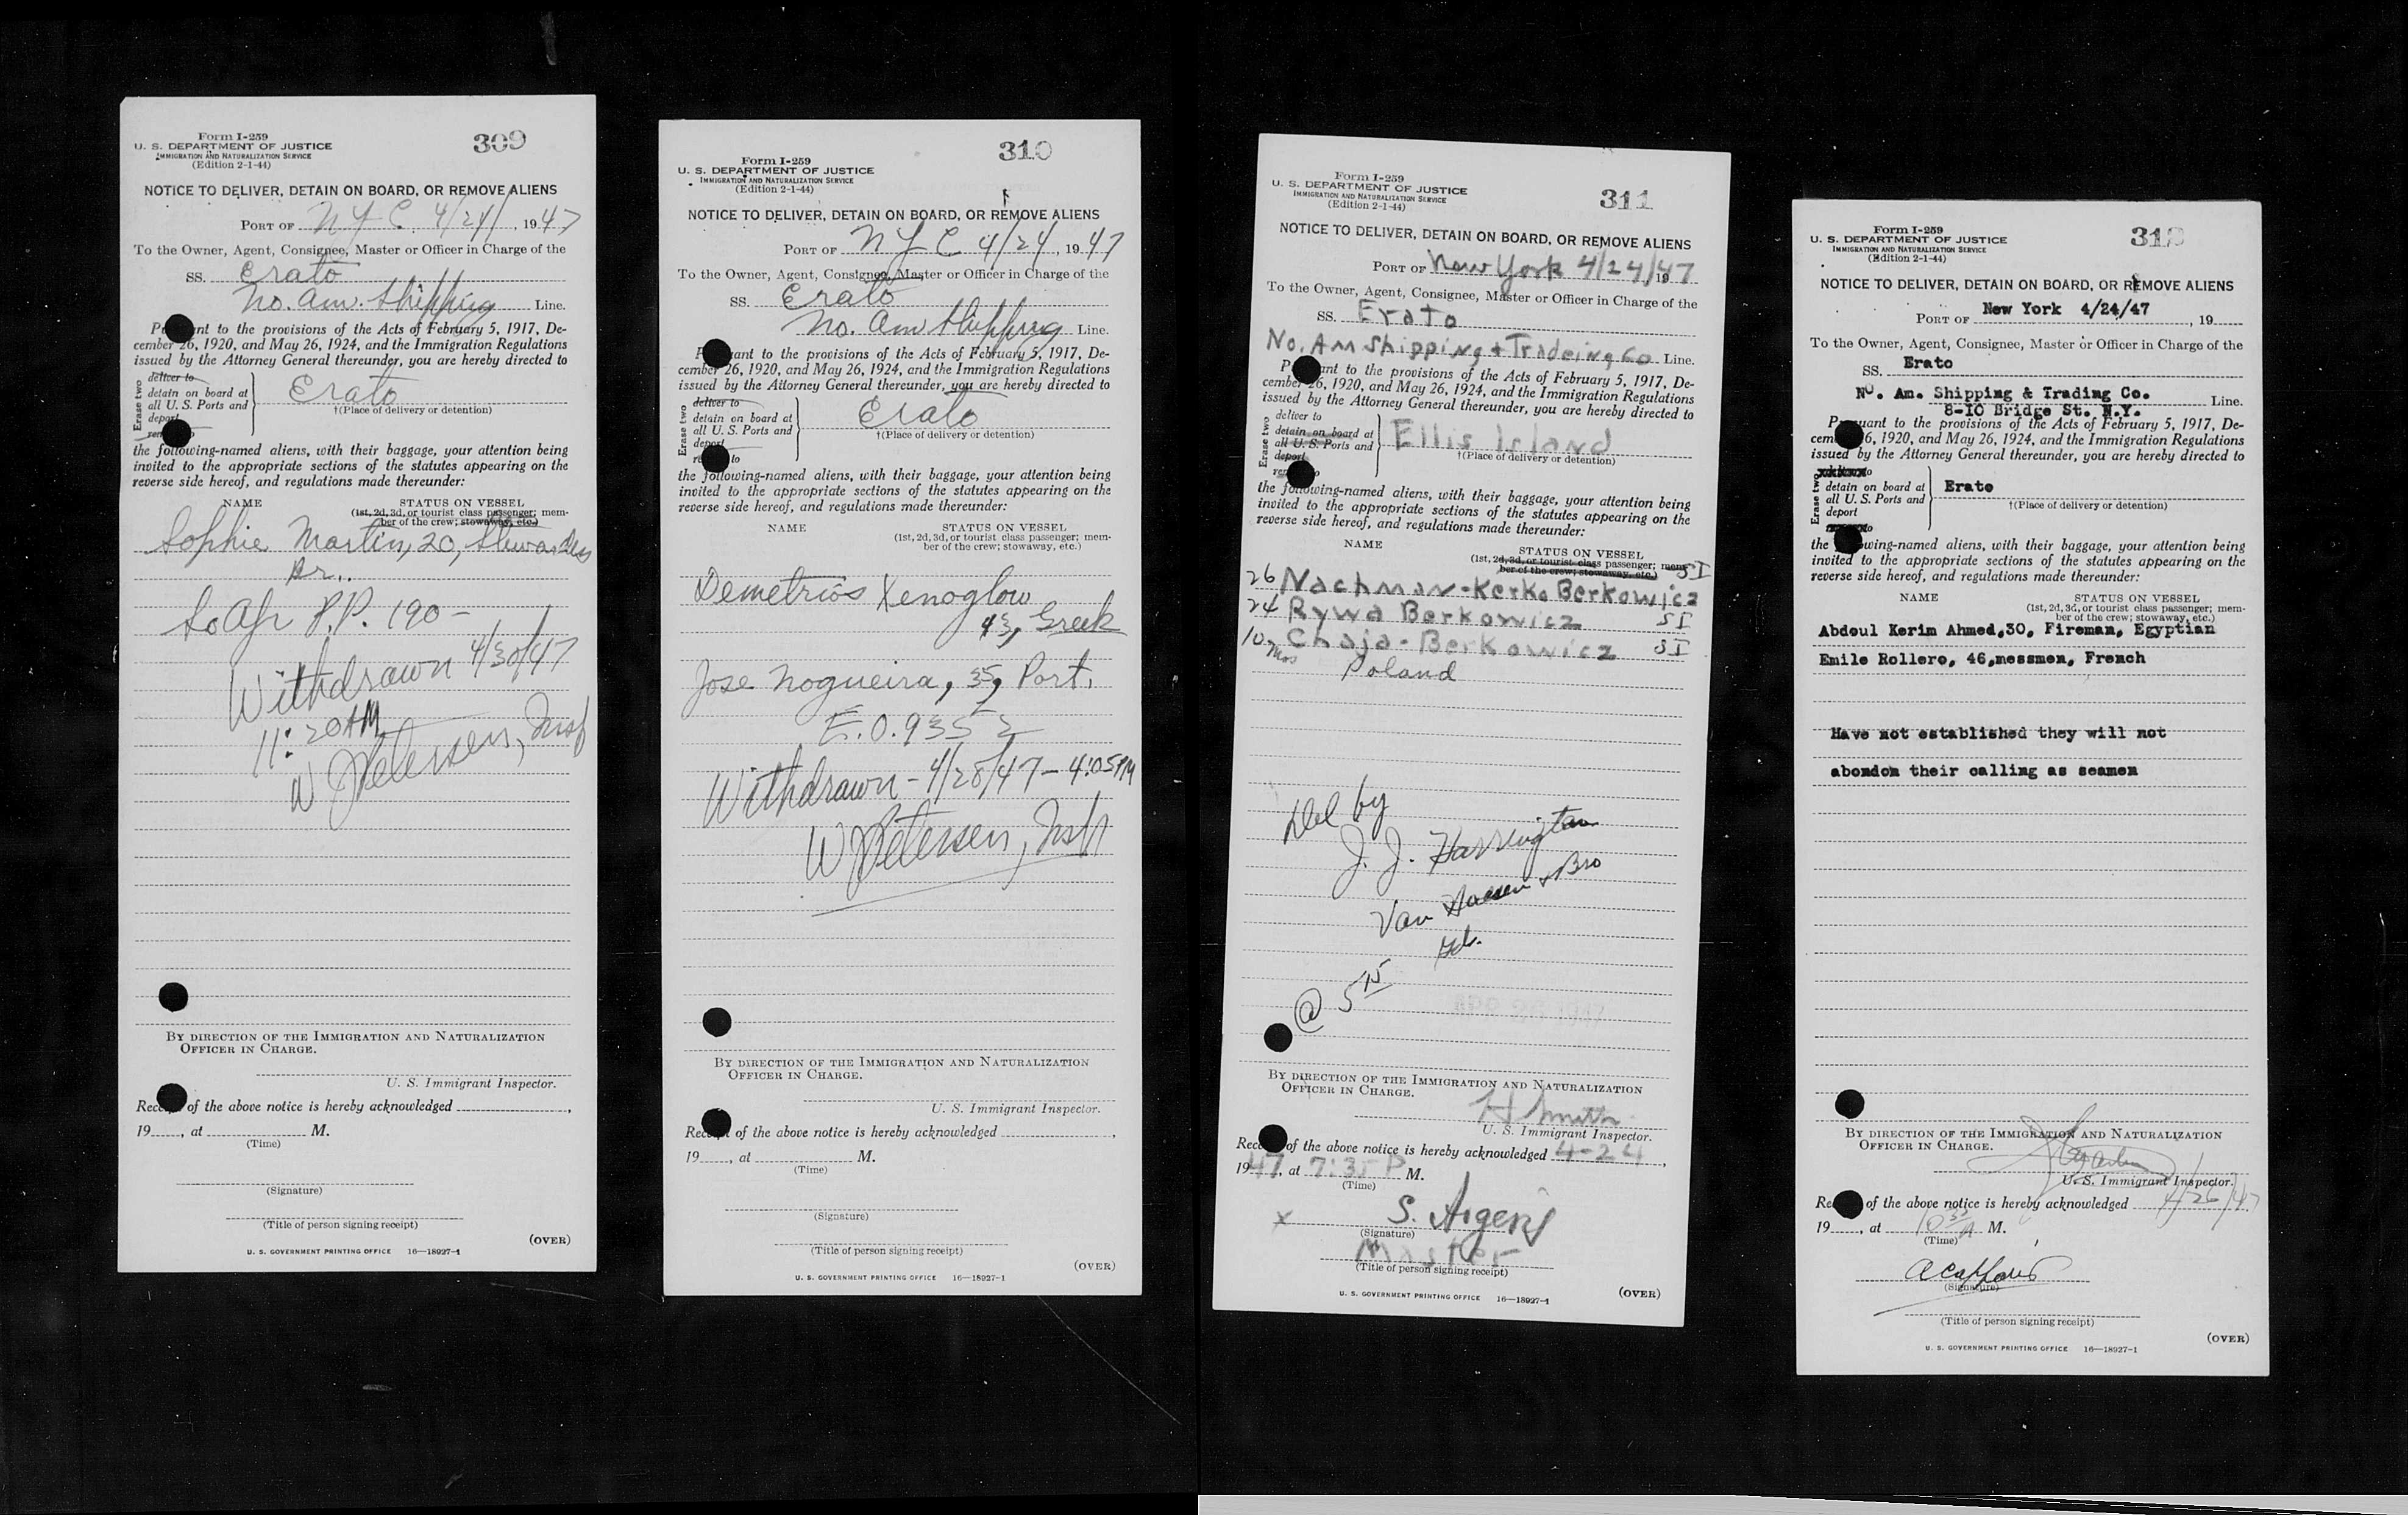 Form I-259
U. S. DEPARTMENT OF JUSTICE
IMMIGRATION AND NATURALIZATION SERVICE
(Edition 2-1-44)
309
NOTICE TO DELIVER, DETAIN ON BOARD, OR REMOVE ALIENS
PORT OF N Y C 4/24/, 1947
To the Owner, Agent, Consignee, Master or Officer in Charge of the
SS. Erato
No. Am. Shipping Line.
P nt to the provisions of the Acts of February 5, 1917, De-
cember 26, 1920, and May 26, 1924, and the Immigration Regulations
issued by the Attorney General thereunder, you are hereby directed to
Erase two
deliver to
detain on board at
all U. S. Ports and
deport
Erato
†(Place of delivery or detention)
the following-named aliens, with their baggage, your attention being
invited to the appropriate sections of the statutes appearing on the
reverse side hereof, and regulations made thereunder:
NAME STATUS ON VESSEL
(1st, 2d, 3d, or tourist class passenger; mem-
ber of the crew; stowaway, etc.)
Sophie Martin, 20, Stewardess
Br.
So Afr P.P. 190-
Withdrawn 4/30/47
11:20AM
W J Petersen, Insp
BY DIRECTION OF THE IMMIGRATION AND NATURALIZATION
OFFICER IN CHARGE.
U. S. Immigrant Inspector.
Rec of the above notice is hereby acknowledged ,
19 , at M.
(Time)
(Signature)
(Title of person signing receipt)
(OVER)
U. S. GOVERNMENT PRINTING OFFICE 16—18927-1
Form I-259
U. S. DEPARTMENT OF JUSTICE
IMMIGRATION AND NATURALIZATION SERVICE
(Edition 2-1-44)
310
NOTICE TO DELIVER, DETAIN ON BOARD, OR REMOVE ALIENS
PORT OF N Y C 4/24, 1947
To the Owner, Agent, Consignee, Master or Officer in Charge of the
SS. Erato
No. Am Shipping Line.
P uant to the provisions of the Acts of February 5, 1917, De-
cember 26, 1920, and May 26, 1924, and the Immigration Regulations
issued by the Attorney General thereunder, you are hereby directed to
Erase two
deliver to
detain on board at
all U. S. Ports and
deport
re to
Erato
†(Place of delivery or detention)
the following-named aliens, with their baggage, your attention being
invited to the appropriate sections of the statutes appearing on the
reverse side hereof, and regulations made thereunder:
NAME STATUS ON VESSEL
(1st, 2d, 3d, or tourist class passenger; mem-
ber of the crew; stowaway, etc.)
Demetrios Xenoglow
43, Greek
Jose Nogueira, 35, Port.
E.O. 9352
Withdrawn - 4/28/47 - 4:05PM
W J Petersen, Insp
BY DIRECTION OF THE IMMIGRATION AND NATURALIZATION
OFFICER IN CHARGE.
U. S. Immigrant Inspector.
Rec of the above notice is hereby acknowledged ,
19 , at M.
(Time)
(Signature)
(Title of person signing receipt)
(OVER)
U. S. GOVERNMENT PRINTING OFFICE 16—18927-1
Form I-259
U. S. DEPARTMENT OF JUSTICE
IMMIGRATION AND NATURALIZATION SERVICE
(Edition 2-1-44)
311
NOTICE TO DELIVER, DETAIN ON BOARD, OR REMOVE ALIENS
PORT OF New York 4/24/47 19
To the Owner, Agent, Consignee, Master or Officer in Charge of the
SS. Erato
No. Am Shipping + Tradeing Co Line.
P ant to the provisions of the Acts of February 5, 1917, De-
cember 26, 1920, and May 26, 1924, and the Immigration Regulations
issued by the Attorney General thereunder, you are hereby directed to
Erase two
deliver to
detain on board at
all U. S. Ports and
deport
Ellis Island
†(Place of delivery or detention)
the following-named aliens, with their baggage, your attention being
invited to the appropriate sections of the statutes appearing on the
reverse side hereof, and regulations made thereunder:
NAME STATUS ON VESSEL
(1st, 2d, 3d, or tourist class passenger; mem-
ber of the crew; stowaway, etc.) SI
26 Nachman-Kerko Berkowicz
24 Rywa Berkowicz SI
10 mos Chaja-Berkowicz SI
Poland
Del by
J. J. Harrington
Van & Bro
@ 5 15
APR 26 1947
BY DIRECTION OF THE IMMIGRATION AND NATURALIZATION
OFFICER IN CHARGE.
H Smith
U. S. Immigrant Inspector.
Rec of the above notice is hereby acknowledged 4-24,
1947, at 7:35 P M.
(Time)
x S.
(Signature)
Master
(Title of person signing receipt)
(OVER)
U. S. GOVERNMENT PRINTING OFFICE 16—18927-1
Form I-259
U. S. DEPARTMENT OF JUSTICE
IMMIGRATION AND NATURALIZATION SERVICE
(Edition 2-1-44)
312
NOTICE TO DELIVER, DETAIN ON BOARD, OR REMOVE ALIENS
PORT OF New York 4/24/47 , 19
To the Owner, Agent, Consignee, Master or Officer in Charge of the
SS. Erato
No. Am. Shipping & Trading Co. Line.
8-10 Bridge St. N.Y.
P uant to the provisions of the Acts of February 5, 1917, De-
cem 6, 1920, and May 26, 1924, and the Immigration Regulations
issued by the Attorney General thereunder, you are hereby directed to
Erase two
to
detain on board at
all U. S. Ports and
deport
to
Erato
†(Place of delivery or detention)
the owing-named aliens, with their baggage, your attention being
invited to the appropriate sections of the statutes appearing on the
reverse side hereof, and regulations made thereunder:
NAME STATUS ON VESSEL
(1st, 2d, 3d, or tourist class passenger; mem-
ber of the crew; stowaway, etc.)
Abdoul Kerim Ahmed,30, Fireman, Egyptian
Emile Rollero, 46,messmen, French
Have not established they will not
abondon their calling as seamen
BY DIRECTION OF THE IMMIGRATION AND NATURALIZATION
OFFICER IN CHARGE.
U. S. Immigrant Inspector.
Re of the above notice is hereby acknowledged 4/26/47
19 , at 10 35 A M.
(Time)
(Signature)
(Title of person signing receipt)
(OVER)
U. S. GOVERNMENT PRINTING OFFICE 16—18927-1